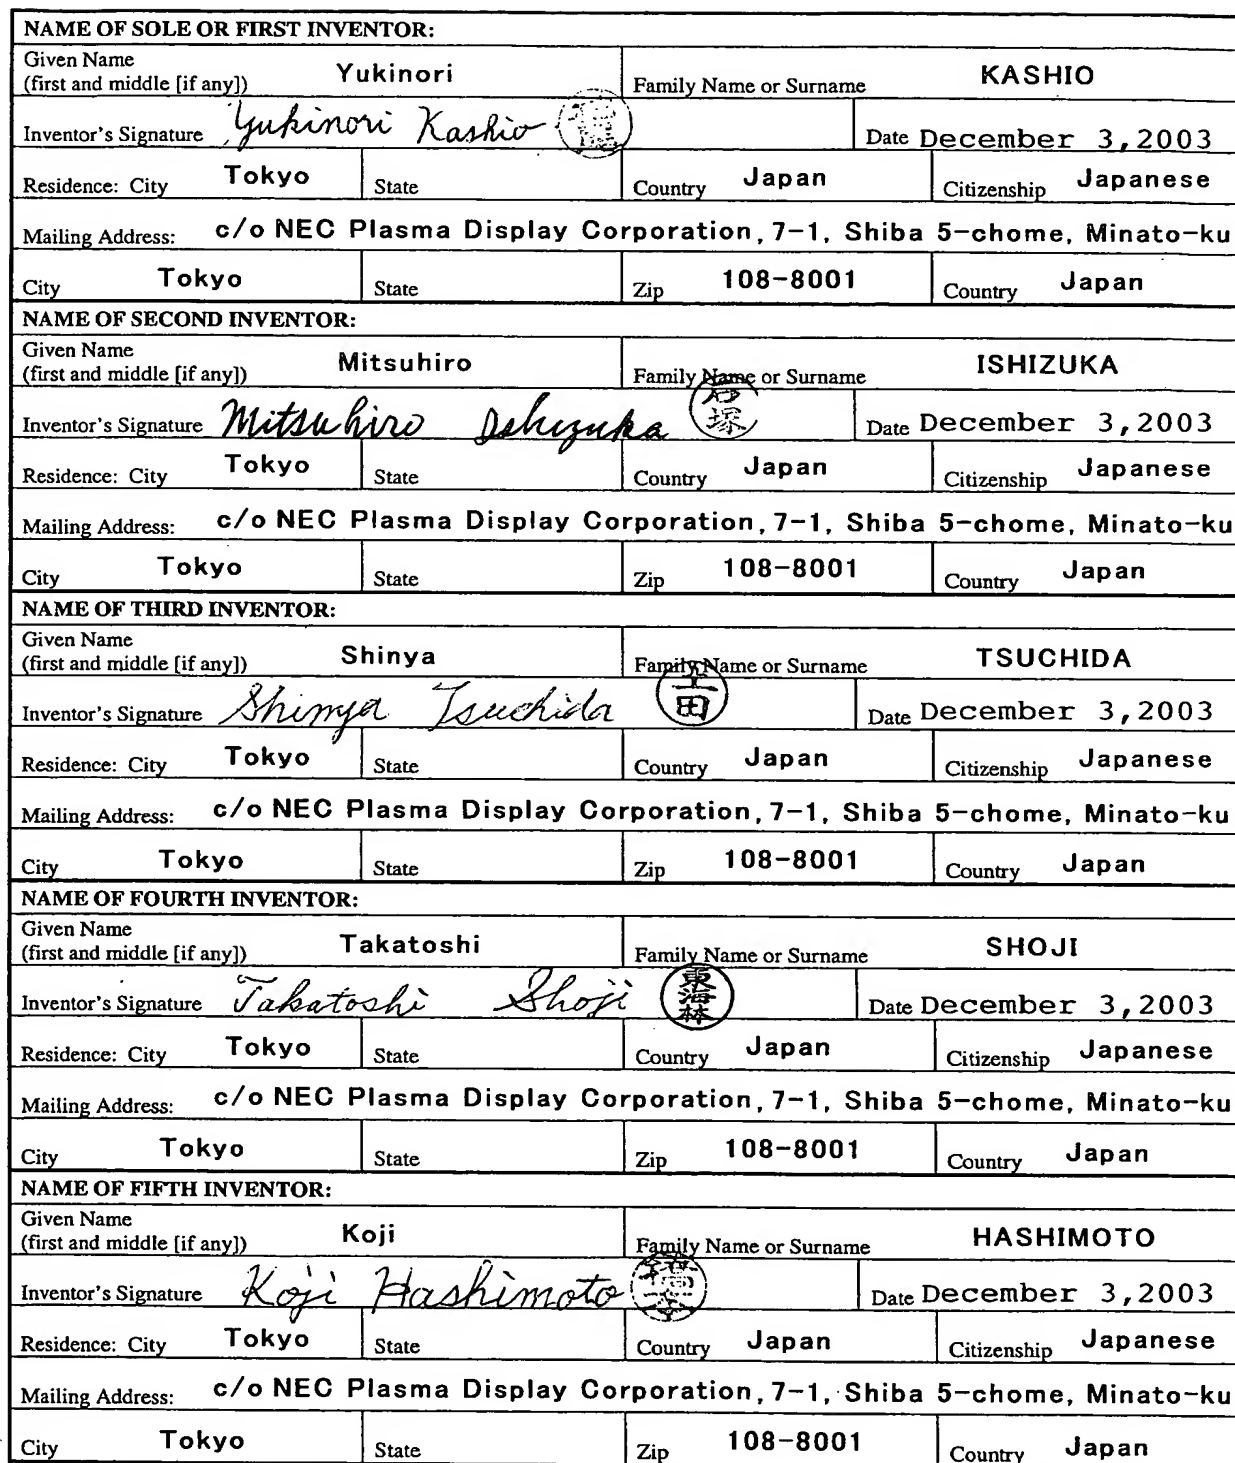 NAME OF SOLE OR FIRST INVENTOR:
Given Name
(first and middle [if any]) Yukinori Family Name or Surname KASHIO
Inventor's Signature Yukinori Kashio Date December 3,2003
Residence: City Tokyo State Country Japan Citizenship Japanese
Mailing Address: c/o NEC Plasma Display Corporation, 7-1, Shiba 5-chome, Minato-ku
City Tokyo State Zip 108-8001 Country Japan
NAME OF SECOND INVENTOR:
Given Name
(first and middle [if any]) Mitsuhiro Family Name or Surname ISHIZUKA
Inventor's Signature Mitsuhiro Ishizuka 石塚 Date December 3,2003
Residence: City Tokyo State Country Japan Citizenship Japanese
Mailing Address: c/o NEC Plasma Display Corporation, 7-1, Shiba 5-chome, Minato-ku
City Tokyo State Zip 108-8001 Country Japan
NAME OF THIRD INVENTOR:
Given Name
(first and middle [if any]) Shinya Family Name or Surname TSUCHIDA
Inventor's Signature Shinya Tsuchida 土田 Date December 3,2003
Residence: City Tokyo State Country Japan Citizenship Japanese
Mailing Address: c/o NEC Plasma Display Corporation, 7-1, Shiba 5-chome, Minato-ku
City Tokyo State Zip 108-8001 Country Japan
NAME OF FOURTH INVENTOR:
Given Name
(first and middle [if any]) Takatoshi Family Name or Surname SHOJI
Inventor's Signature Takatoshi Shoji 東海林 Date December 3,2003
Residence: City Tokyo State Country Japan Citizenship Japanese
Mailing Address: c/o NEC Plasma Display Corporation, 7-1, Shiba 5-chome, Minato-ku
City Tokyo State Zip 108-8001 Country Japan
NAME OF FIFTH INVENTOR:
Given Name
(first and middle [if any]) Koji Family Name or Surname HASHIMOTO
Inventor's Signature Koji Hashimoto 橋本 Date December 3,2003
Residence: City Tokyo State Country Japan Citizenship Japanese
Mailing Address: c/o NEC Plasma Display Corporation, 7-1, Shiba 5-chome, Minato-ku
City Tokyo State Zip 108-8001 Country Japan